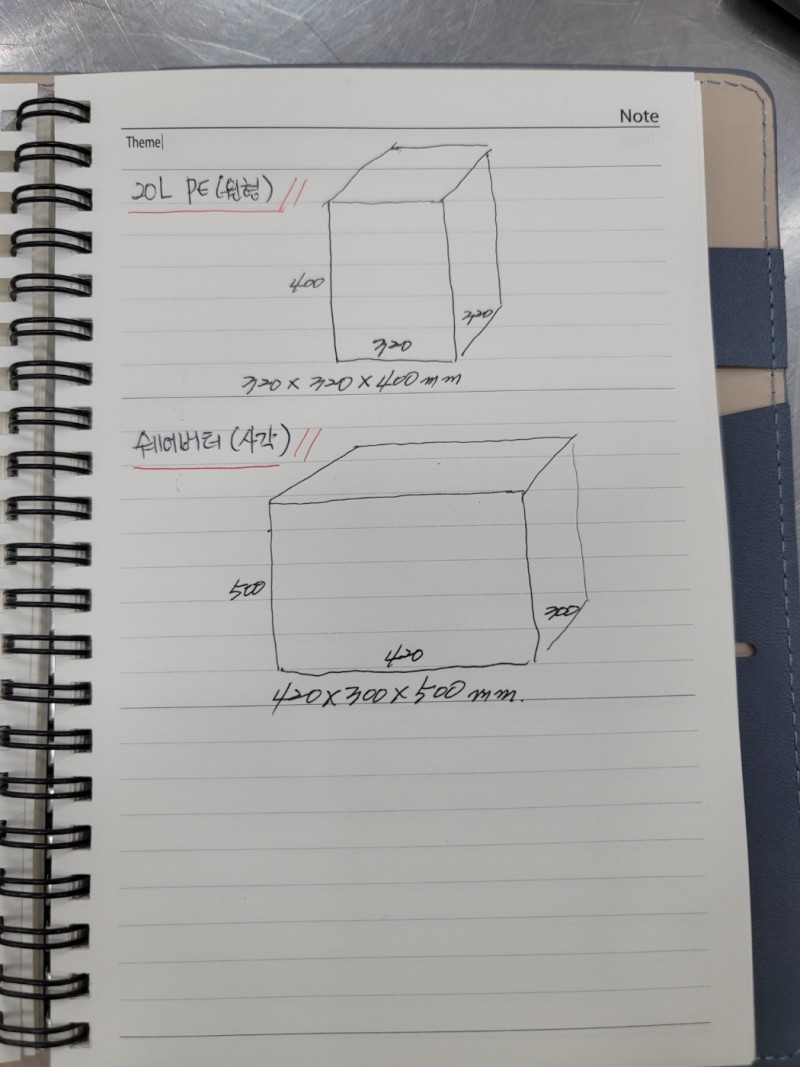 Note
Theme
20L PE(원형)
400
320
320
320 × 320 × 400mm
쉐어버터(사각)
500
300
420
420×300×500mm.